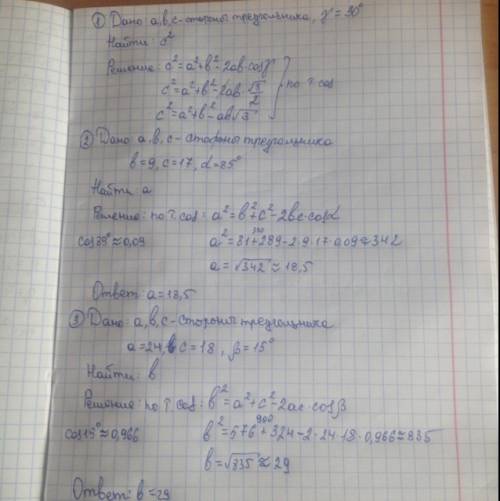 ① Дано: a,b,c-стороны треугольника, γ = 30°
Найти: c²
Решение: c² = a²+b²-2ab·cosγ
c² = a²+b²-2ab·√3/2
c² = a²+b²-ab√3
по т. cos
② Дано: a,b,c-стороны треугольника
b=9, c=17, α=85°
Найти: a
Решение: по т. cos: a²=b²+c²-2bc·cosα
a²=81+289-2·9·17·0,09≈342
a=√342≈18,5
Ответ: a=18,5
③ Дано: a,b,c-стороны треугольника
a=24, c=18, β=15°
Найти: b
Решение: по т. cos: b²=a²+c²-2ac·cosβ
cos15°≈0,966
900
b²=576+324-2·24·18·0,966≈835
b=√835≈29
Ответ: b=29